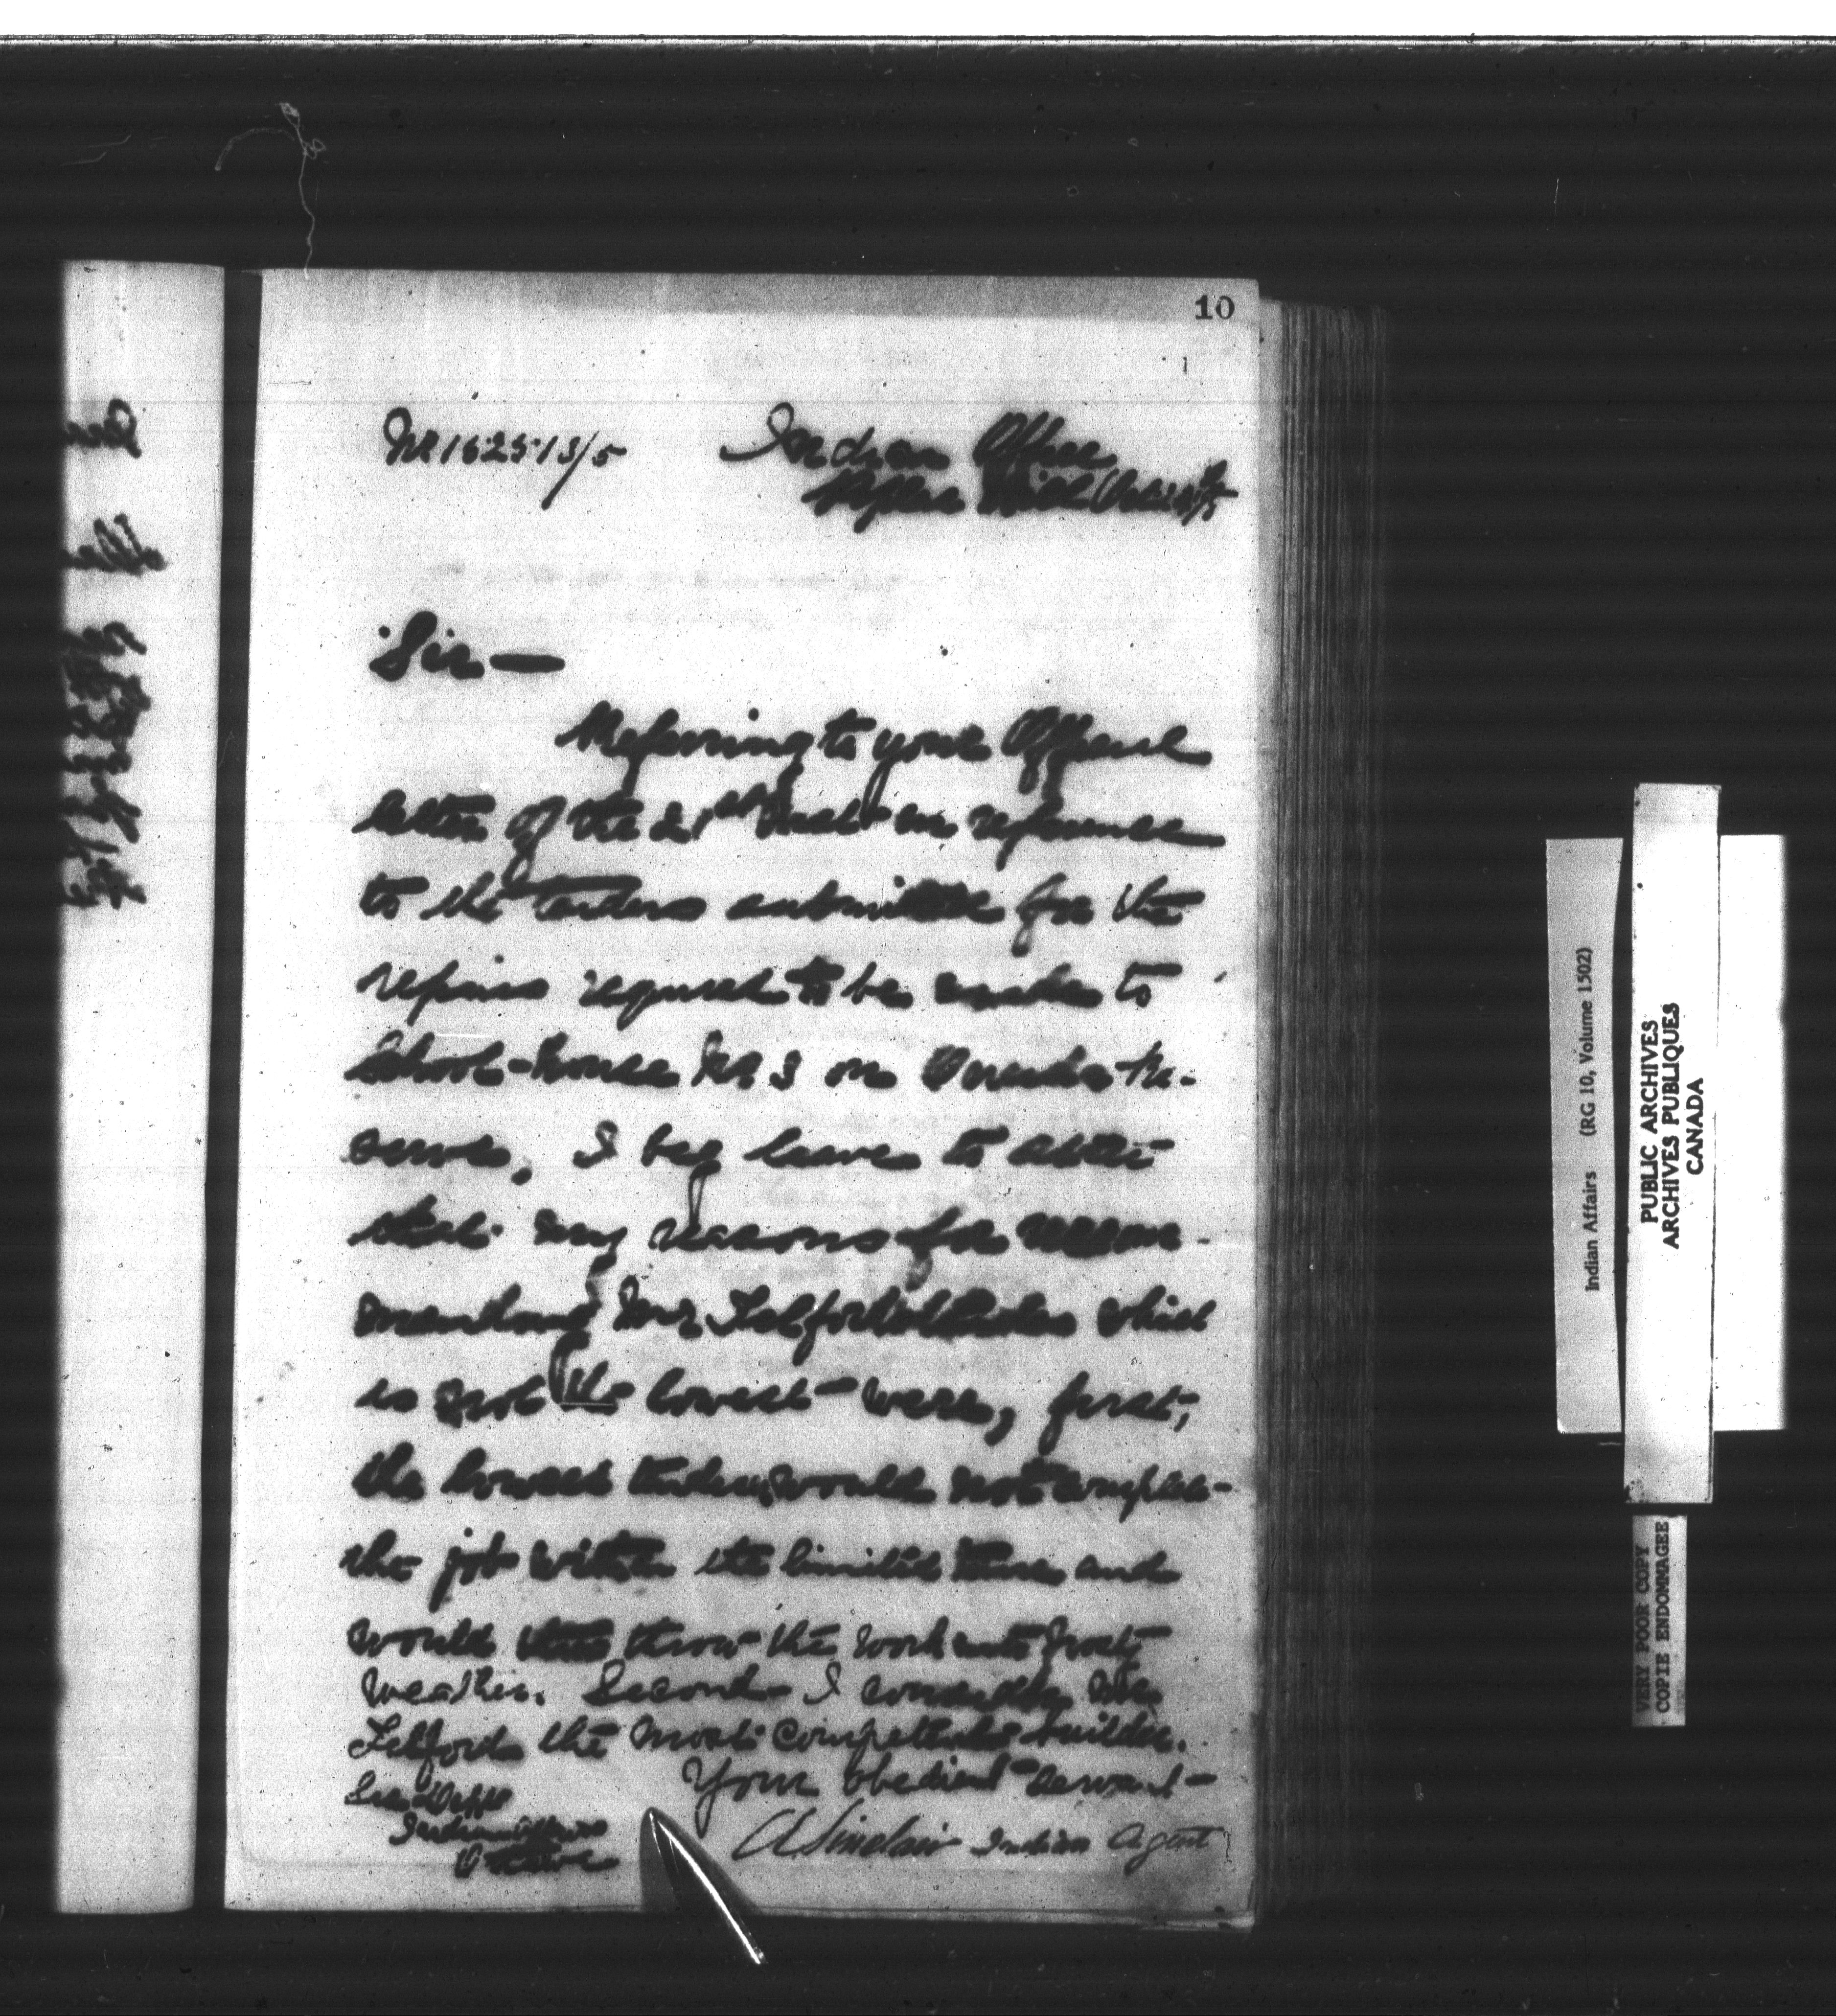 10
Indian Office
Sir —
Referring to your Official
letter of the 21st inst in reference
to the tenders submitted for the
repairs required to be made to
School-house No 3 on Oneida Re-
serve, I beg leave to state
that my reasons for recom-
mending Mr Telford's tender which
is not the lowest were, first,
the lowest tender would not complete
the job within the limited time and
would thus throw the work into frosty
weather. Second I consider Mr
Telford the most competent builder.
Your obedient servant
A Sinclair Indian Agent
Sec. Dept
Indian Affairs
Ottawa
Indian Affairs (RG 10, Volume 1502)
PUBLIC ARCHIVES
ARCHIVES PUBLIQUES
CANADA
VERY POOR COPY
COPIE ENDOMMAGEE